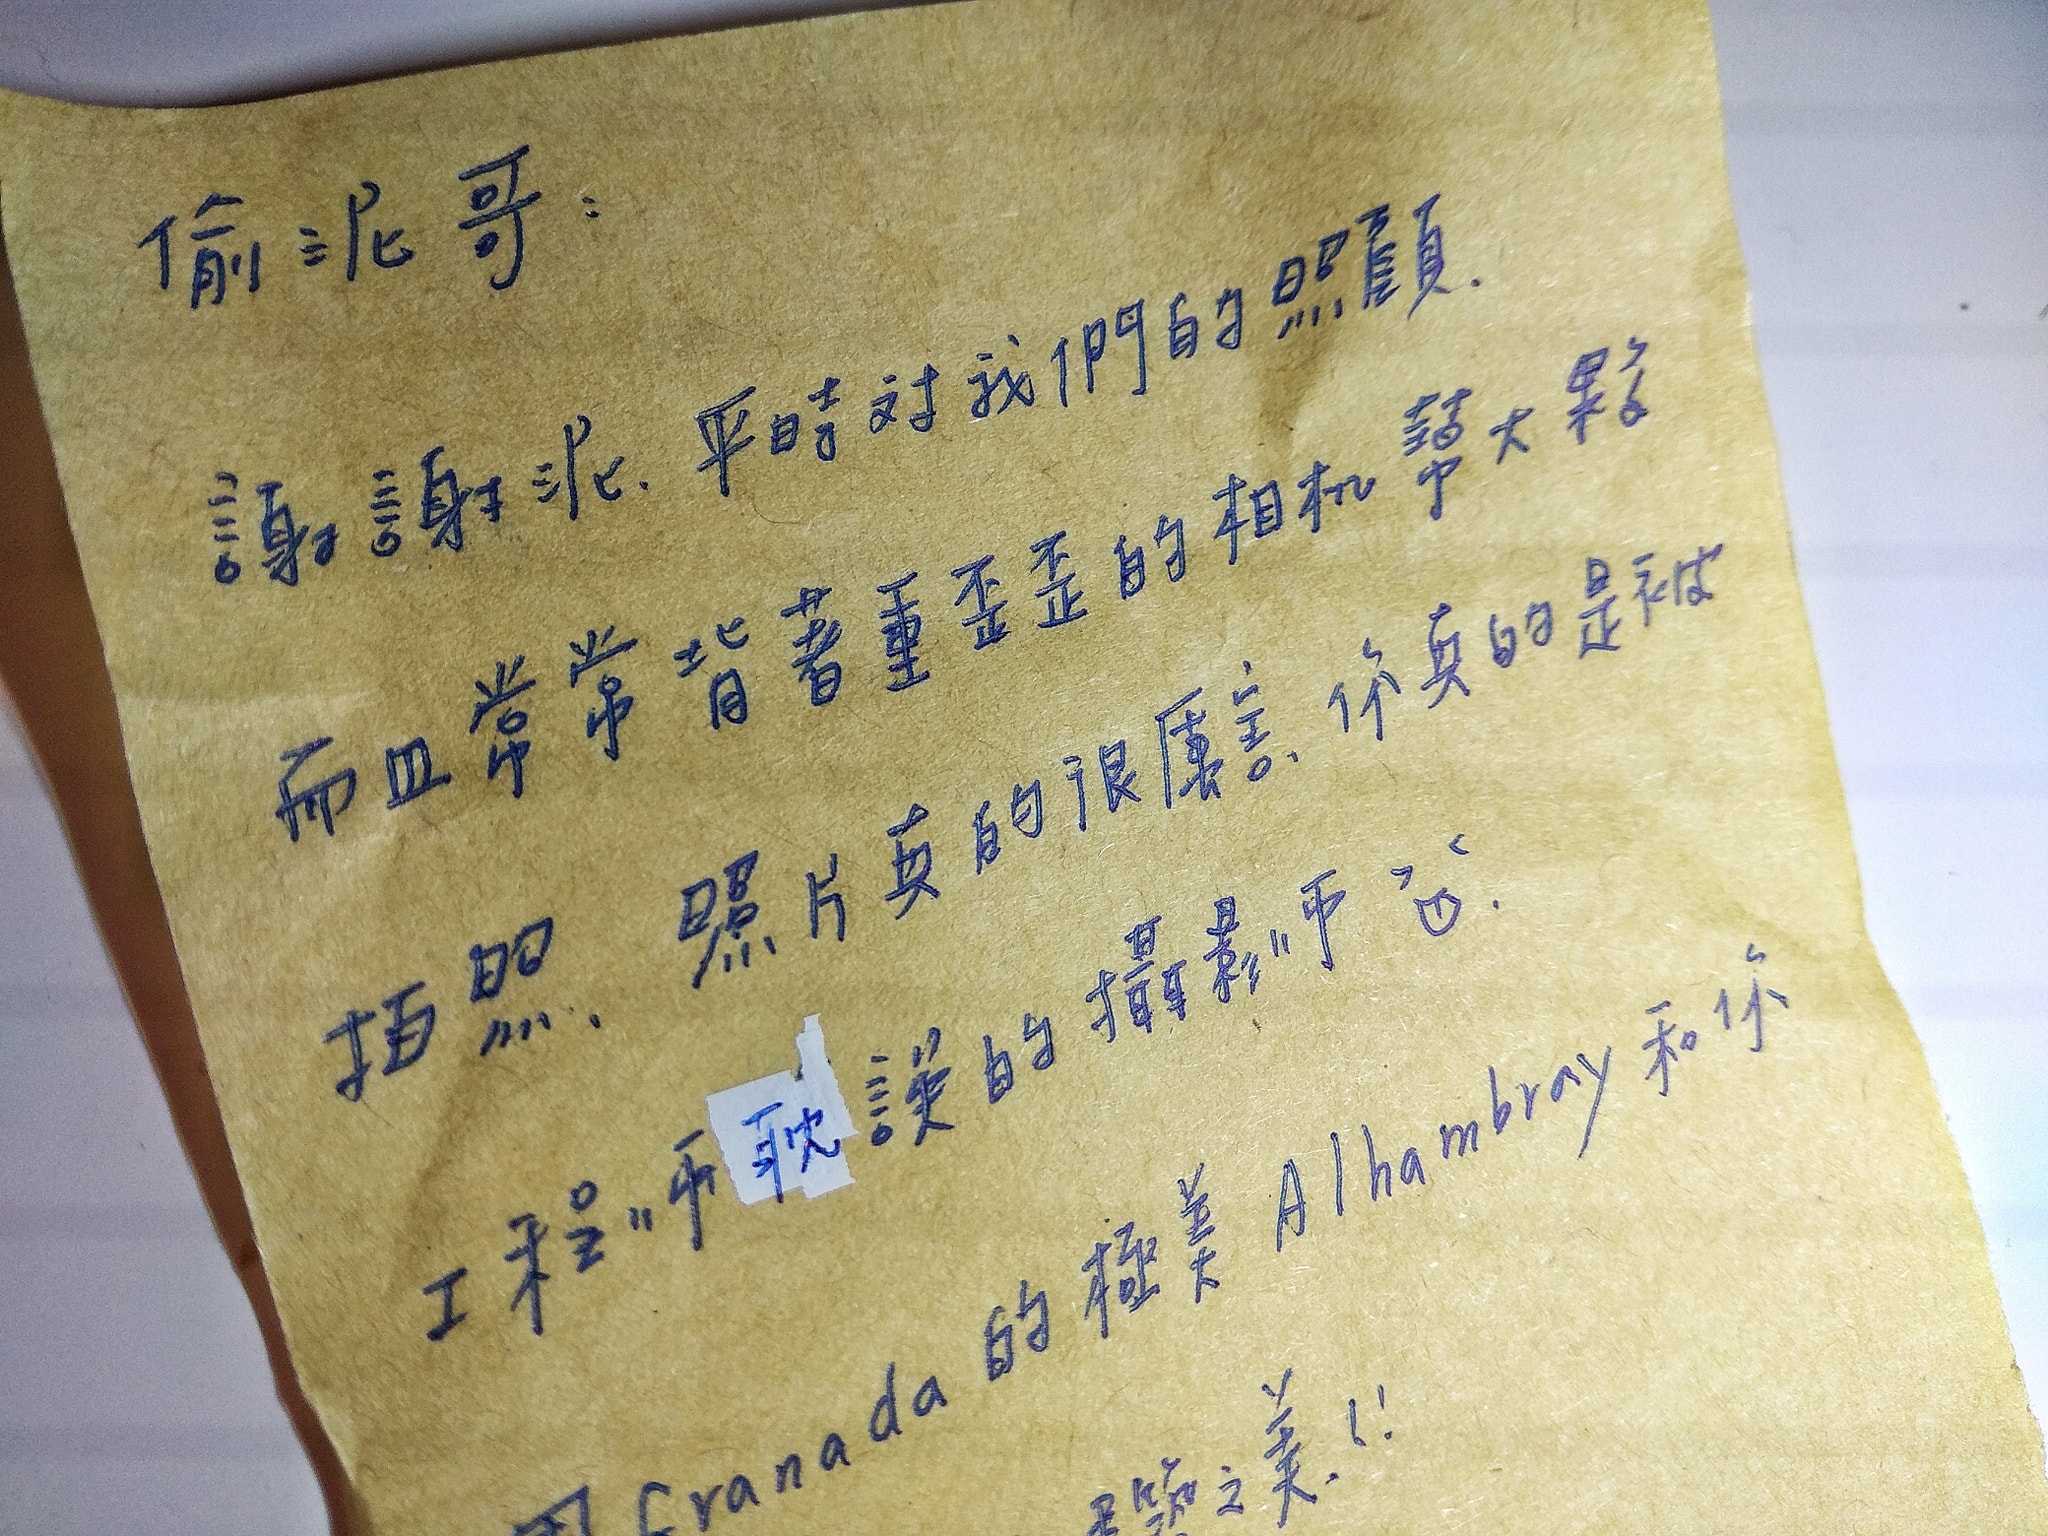 偷泥哥:
謝謝泥. 平時対我們的照顧.
而且常常背著重歪歪的相机幫大夥
拍照. 照片真的很厲害. 你真的是被
工程"师"耽誤的攝影"师"
用Granada的極美Alhambray和你
之美!!